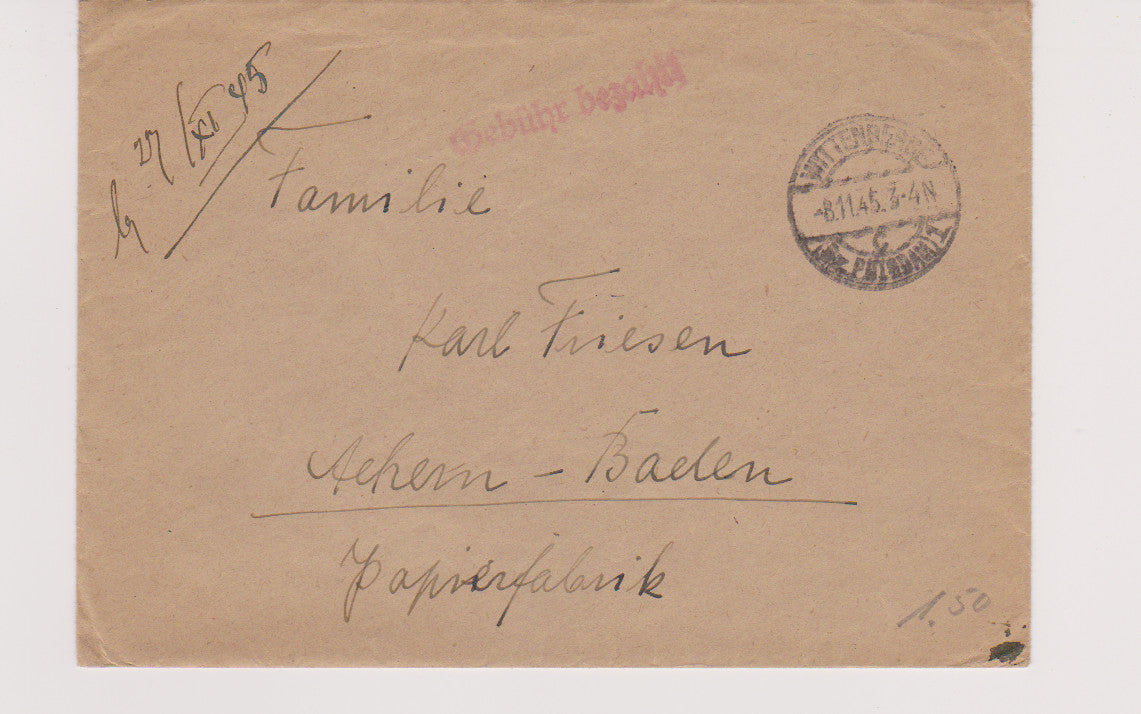 27/XI 45
Gebühr bezahlt
WITTENBERGE
-8.11.45.3-4N
c
(Bz. POTSDAM) 1
Familie
Karl Friesen
Achern - Baden
Papierfabrik
1.50